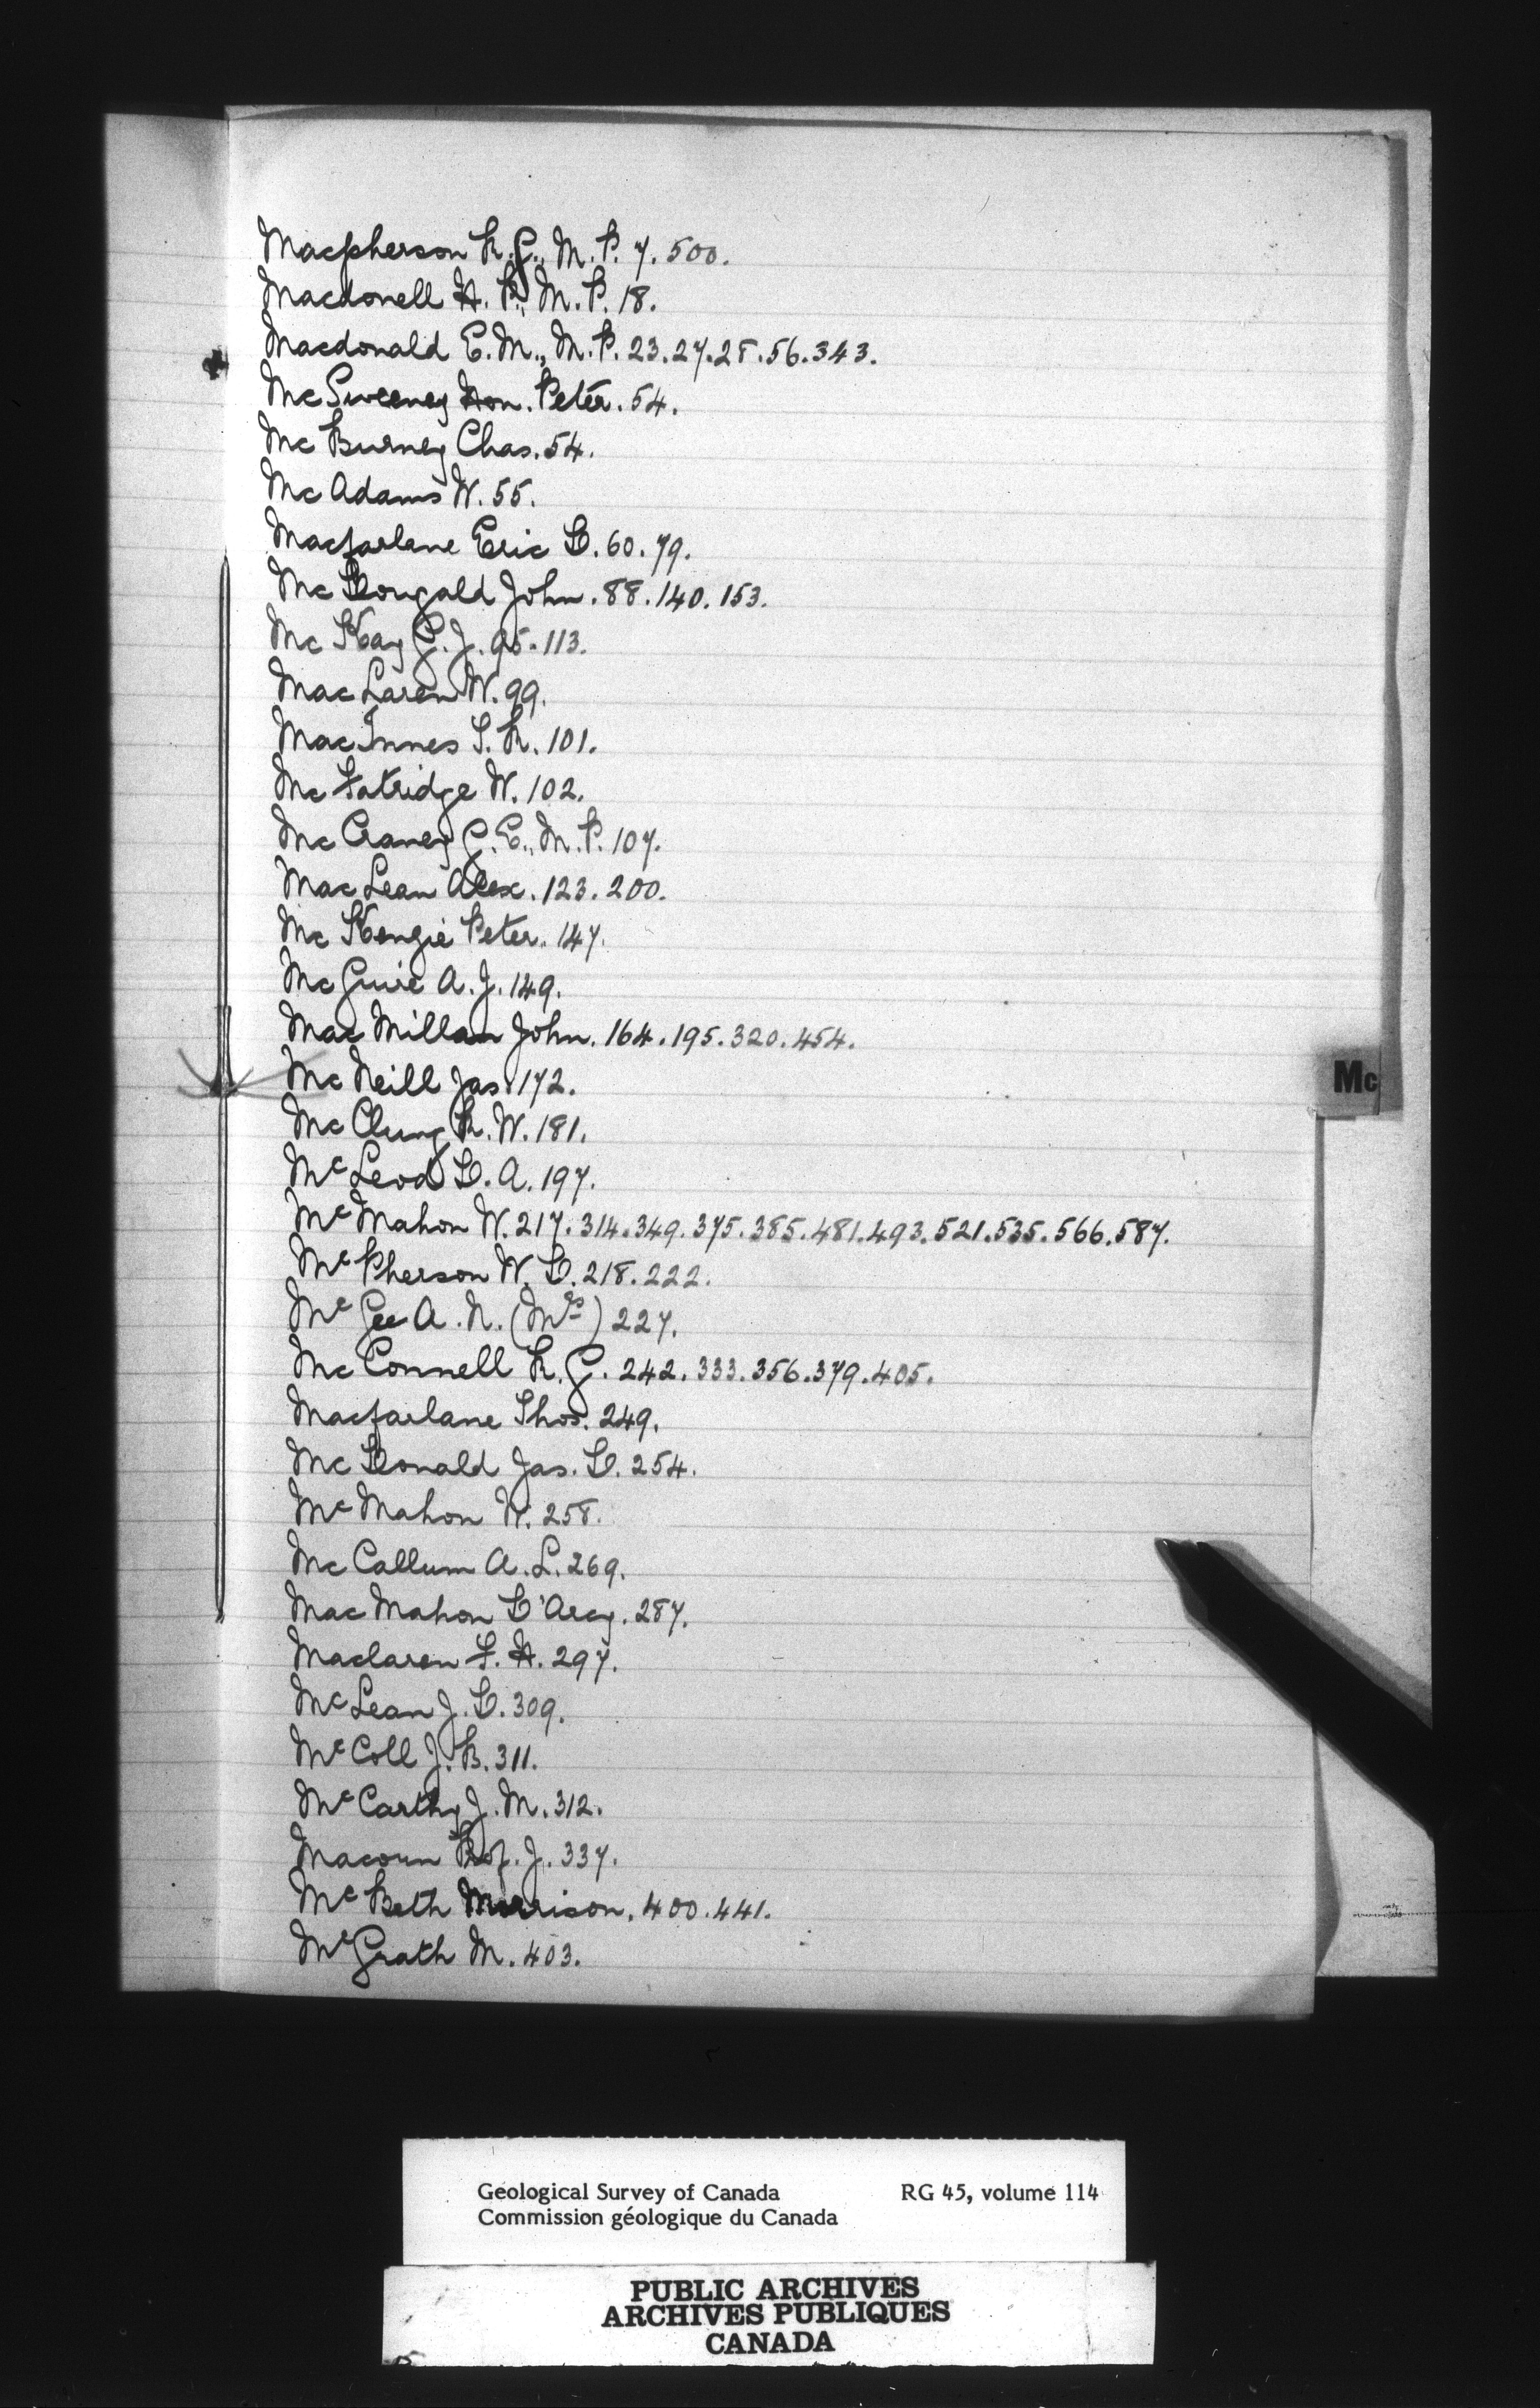 Macpherson R. G., M. P. 7. 500.
Macdonell A. P., M. P. 18.
Macdonald E. M., M. P. 23. 27. 28. 56. 343.
Mc Sweeney Hon. Peter. 54.
Mc Burney Chas. 54.
Mc Adams W. 55.
Macfarlane Eric D. 60. 79.
Mc Dougald John. 88. 140. 153.
Mc Kay G. J. 95. 113.
Mac Laren W. 99.
Mac Innes T. R. 101.
Mc Fatridge W. 102.
Mc Craney G. E., M. P. 107.
Mac Lean Alex. 123. 200.
Mc Kenzie Peter. 147.
Mc Guire A. J. 149.
Mac Millan John. 164. 195. 320. 454.
Mc Neill Jas. 172.
Mc Clung R. W. 181.
Mc Leod D. A. 197.
Mc Mahon W. 217. 314. 349. 375. 385. 481. 493. 521. 535. 566. 587.
Mc Pherson W. D. 218. 222.
Mc Gee A. N. (Mrs) 227.
Mc Connell R. G. 242. 333. 356. 379. 405.
Macfarlane Thos. 249.
Mc Donald Jas. D. 254.
Mc Mahon W. 258.
Mc Callum A. L. 269.
Mac Mahon D'Arcy. 287.
Maclaren F. H. 297.
Mc Lean J. D. 309.
Mc Coll J. B. 311.
Mc Carthy J. M. 312.
Macoun Prof. J. 337.
Mc Beth Morrison. 400. 441.
Mc Grath M. 403.
Mc
Geological Survey of Canada RG 45, volume 114
Commission géologique du Canada
PUBLIC ARCHIVES
ARCHIVES PUBLIQUES
CANADA